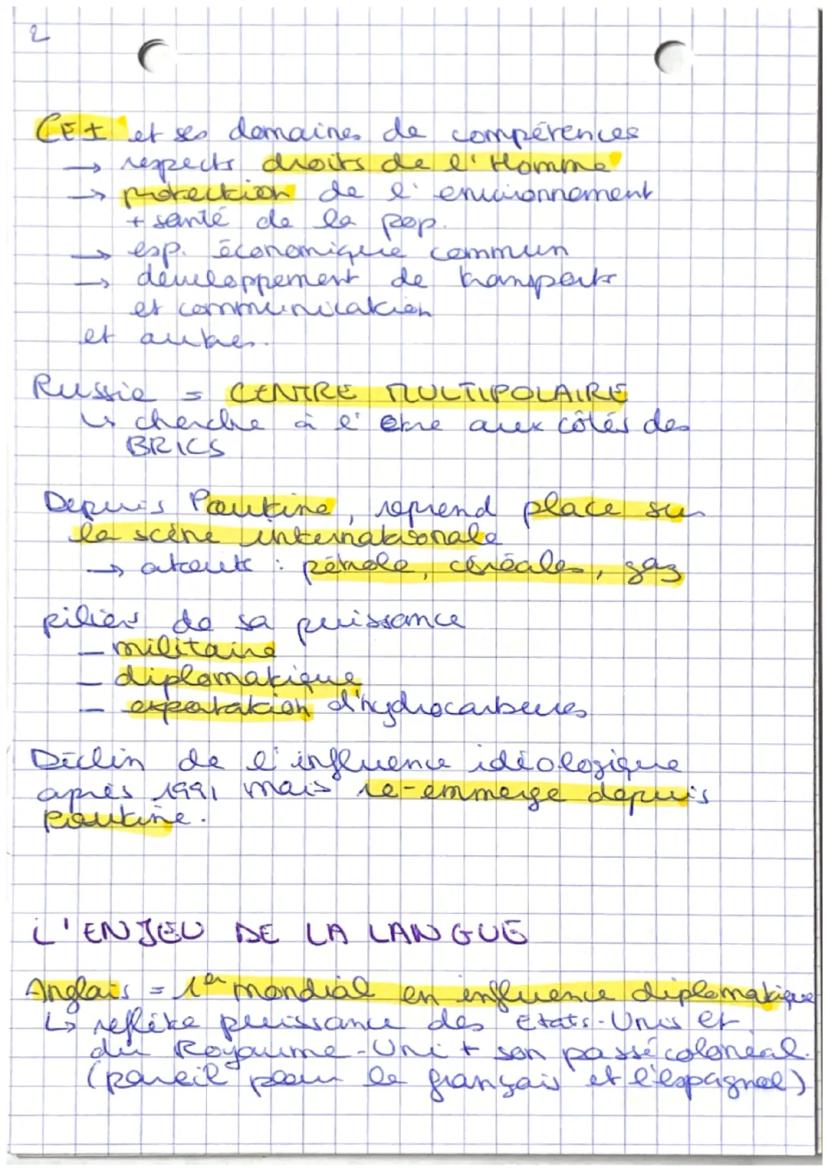 2
CEI et ses domaines de compérences
→ respects droits de l'Homme
→ protection de l'environnement
+ santé de la pop.
→ esp. économique commun
→ développement de transports
et communication
et autres.
Russie = CENTRE MULTIPOLAIRE
↳ cherche à l'être aux côtés des
BRICS
Depuis Poutine, reprend place sur
la scène internationale
→ atouts : pétrole, céréales, gaz
pilier de sa puissance
- militaire
- diplomatique
- exportation d'hydrocarbures
Déclin de l'influence idéologique
après 1991 mais re-emmerge depuis
Poutine.
L'ENJEU DE LA LANGUE
Anglais = 1er mondial en influence diplomatique
↳ reflète puissance des Etats-Unis et
du Royaume-Uni + son passé colonial.
(pareil pour le français et l'espagnol)